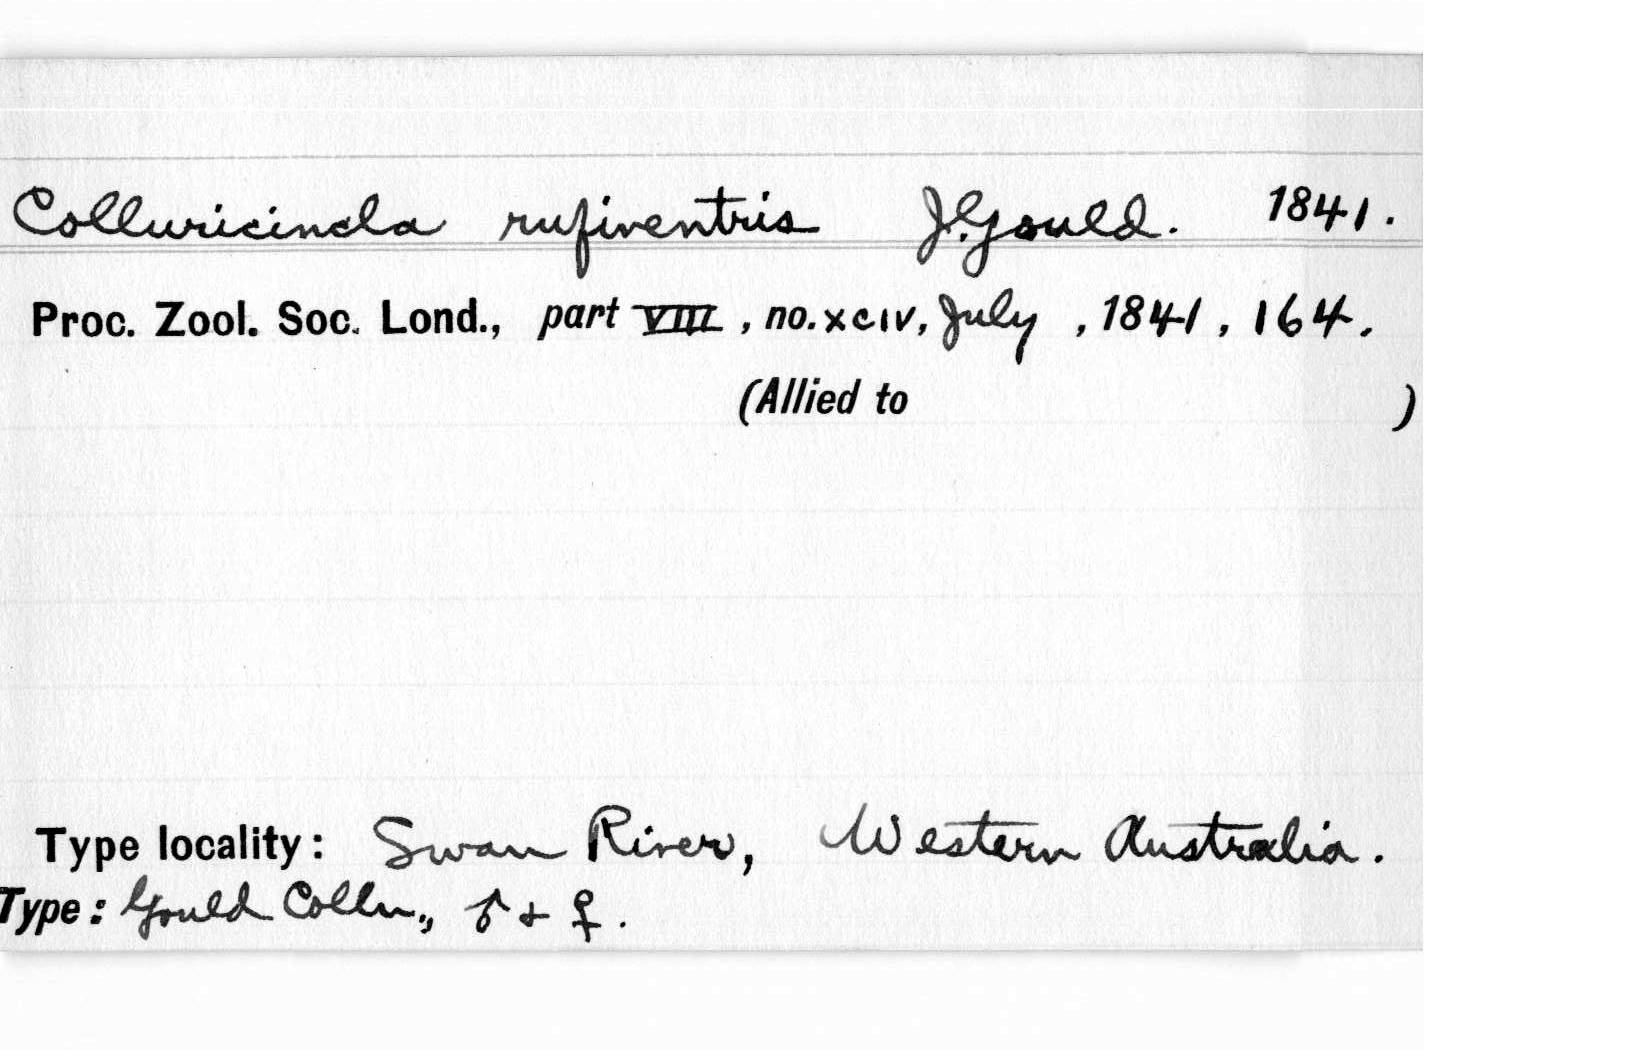 Colluricincla rufiventris J. Gould. 1841.
Proc. Zool. Soc. Lond., part VIII, no. xciv, July, 1841, 164.
(Allied to )
Type locality: Swan River, Western Australia.
Type: Gould Colln., ♂ + ♀.